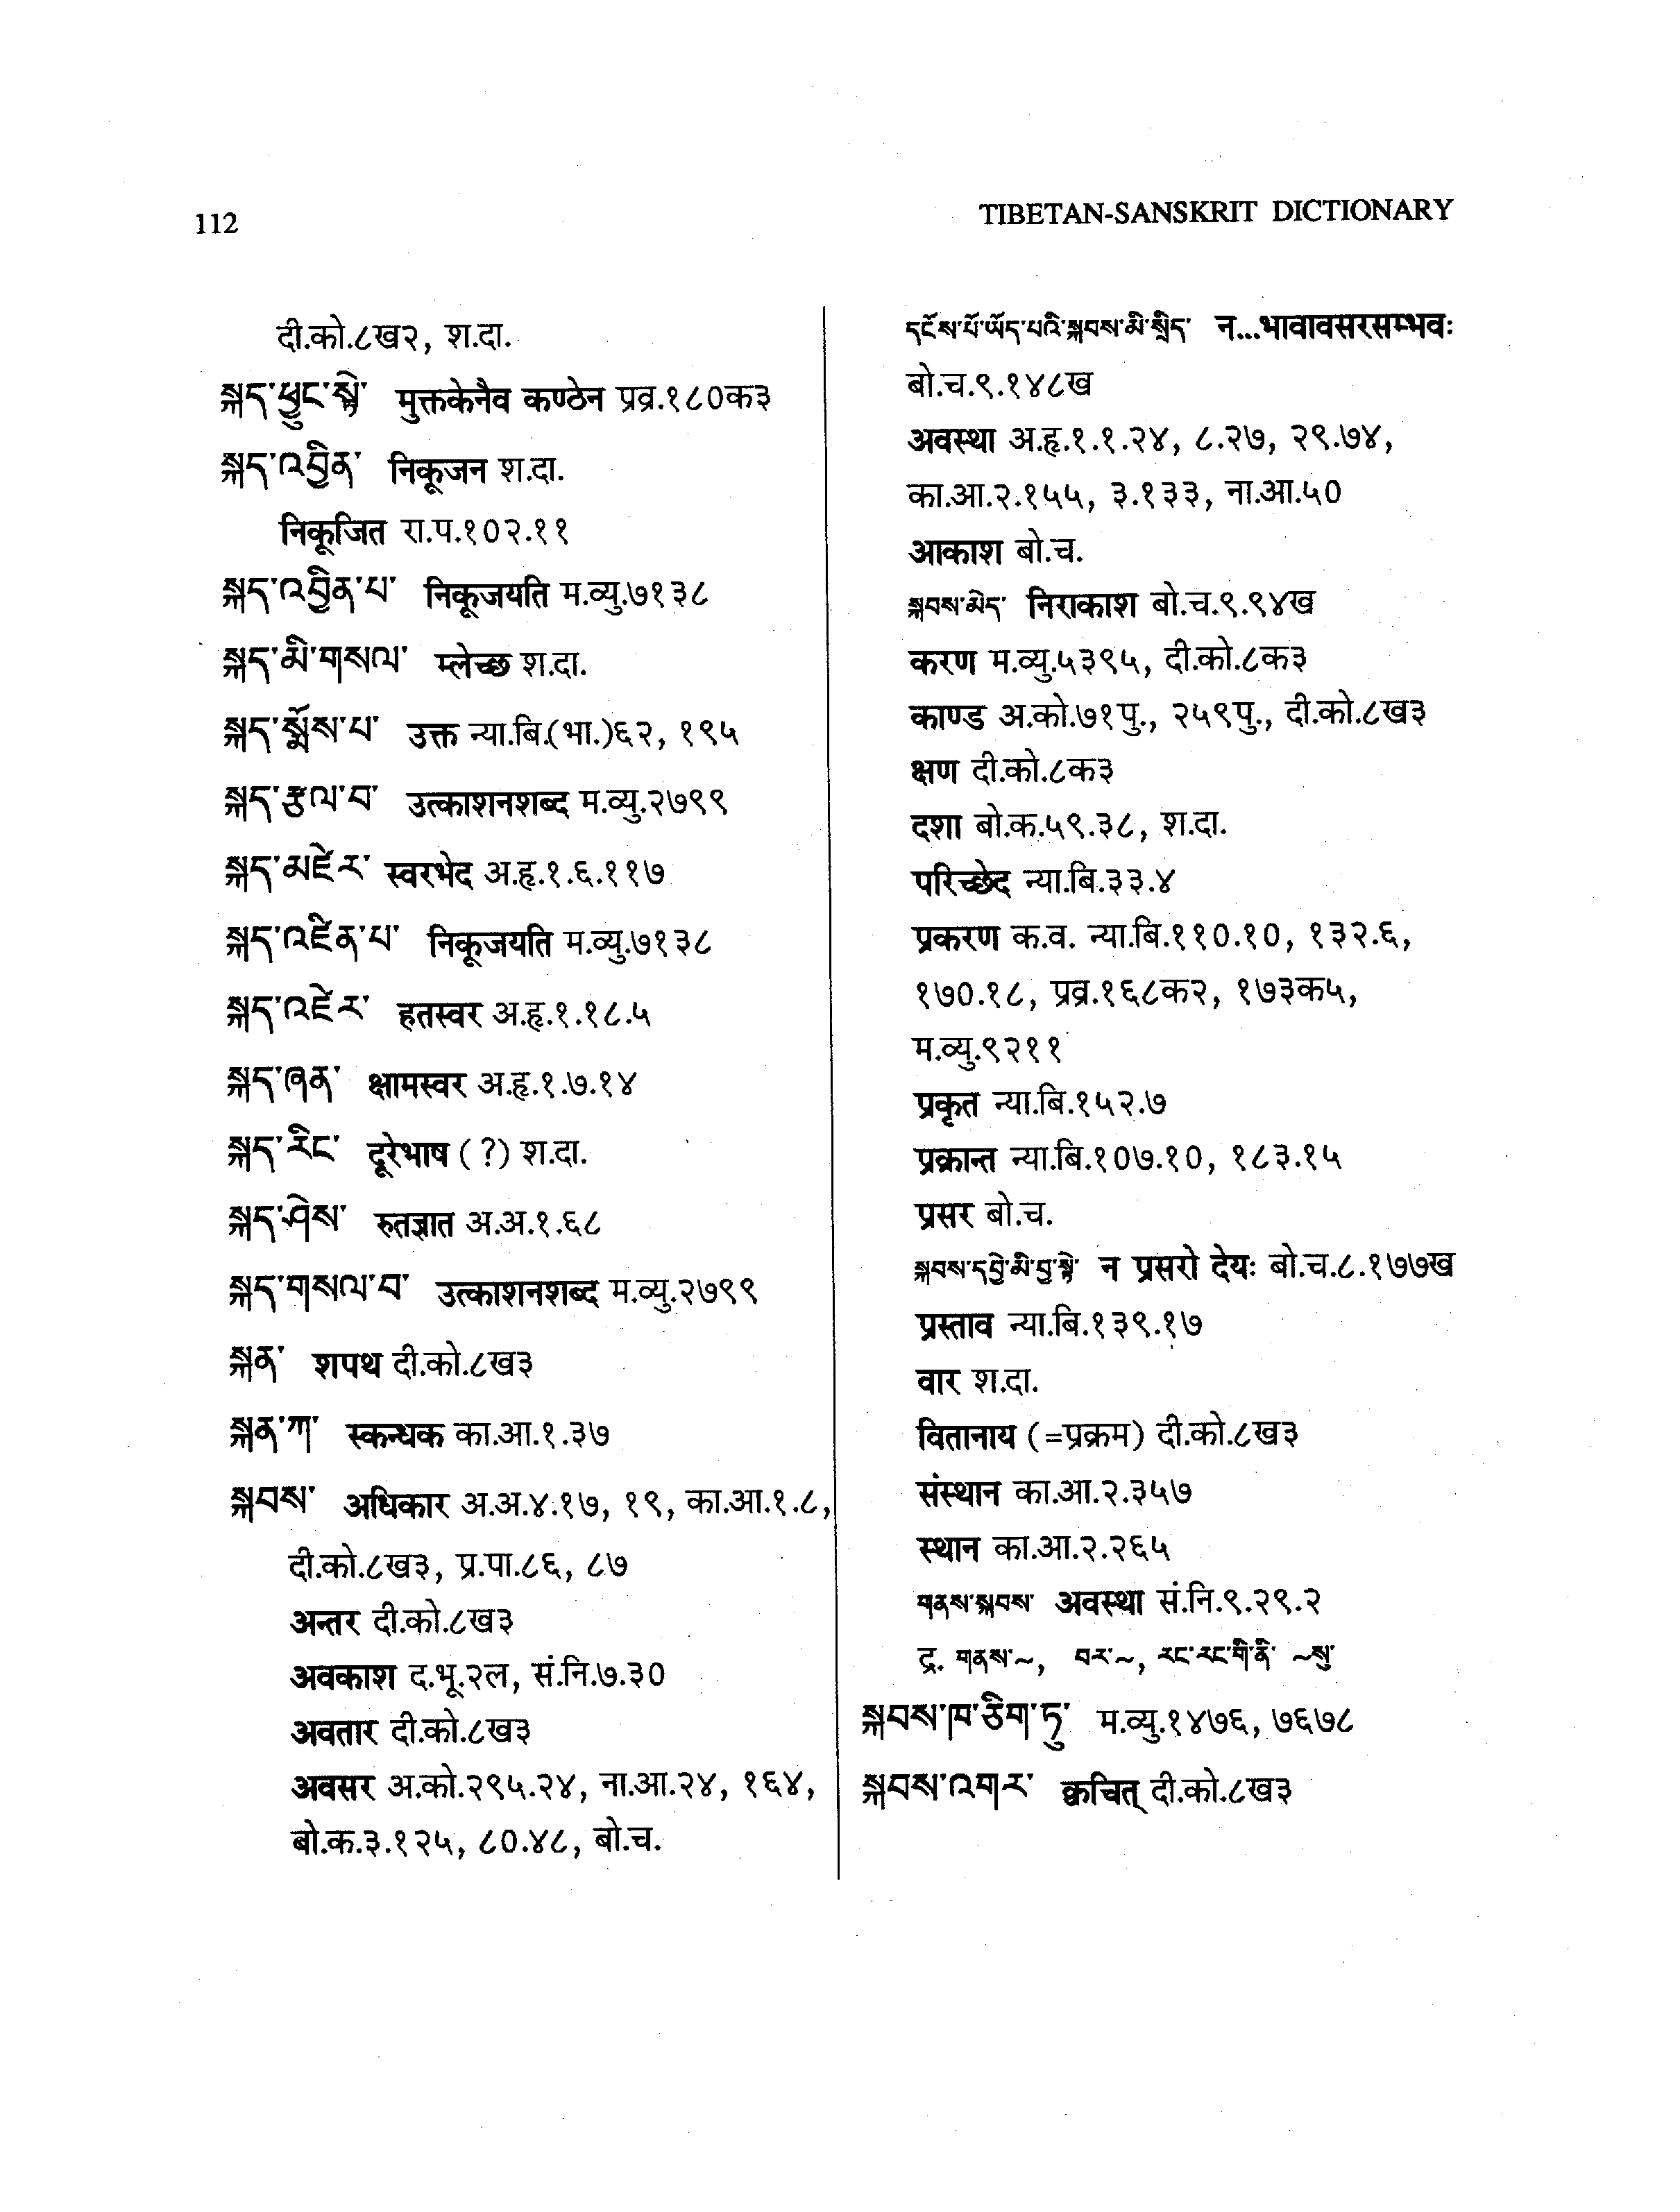 112
TIBETAN-SANSKRIT DICTIONARY
दी.को.८ख२, श.दा.
སྐད་ཕྱུང་སྟེ་ मुक्तकेनैव कण्ठेन प्रव्र.१८०क३
སྐད་འབྱིན་ निकूजन श.दा.
निकूजित रा.प.१०२.११
སྐད་འབྱིན་པ་ निकूजयति म.व्यु.७१३८
སྐད་མི་གསལ་ म्लेच्छ श.दा.
སྐད་སྨོས་པ་ उक्त न्या.बि.(भा.)६२, १९५
སྐད་རྩལ་བ་ उत्काशनशब्द म.व्यु.२७९९
སྐད་མཛེར་ स्वरभेद अ.हृ.१.६.११७
སྐད་འཛིན་པ་ निकूजयति म.व्यु.७१३८
སྐད་འཛེར་ हतस्वर अ.हृ.१.१८.५
སྐད་ཞན་ क्षामस्वर अ.हृ.१.७.१४
སྐད་རིང་ दूरेभाष (?) श.दा.
སྐད་ཤེས་ रुतज्ञात अ.अ.१.६८
སྐད་གསལ་བ་ उत्काशनशब्द म.व्यु.२७९९
སྐན་ शपथ दी.को.८ख३
སྐན་ཀ་ स्कन्धक का.आ.१.३७
སྐབས་ अधिकार अ.अ.४.१७, १९, का.आ.१.८,
दी.को.८ख३, प्र.पा.८६, ८७
अन्तर दी.को.८ख३
अवकाश द.भू.२ल, सं.नि.७.३०
अवतार दी.को.८ख३
अवसर अ.को.२९५.२४, ना.आ.२४, १६४,
बो.क.३.१२५, ८०.४८, बो.च.
དངོས་པོ་ཡོད་པའི་སྐབས་མི་སྲིད་ न...भावावसरसम्भवः
बो.च.९.१४८ख
अवस्था अ.हृ.१.१.२४, ८.२७, २९.७४,
का.आ.२.१५५, ३.१३३, ना.आ.५०
आकाश बो.च.
སྐབས་མེད་ निराकाश बो.च.९.९४ख
करण म.व्यु.५३९५, दी.को.८क३
काण्ड अ.को.७१पु., २५९पु., दी.को.८ख३
क्षण दी.को.८क३
दशा बो.क.५९.३८, श.दा.
परिच्छेद न्या.बि.३३.४
प्रकरण क.व. न्या.बि.११०.१०, १३२.६,
१७०.१८, प्रव्र.१६८क२, १७३क५,
म.व्यु.९२११
प्रकृत न्या.बि.१५२.७
प्रक्रान्त न्या.बि.१०७.१०, १८३.१५
प्रसर बो.च.
སྐབས་དབྱེ་མི་བྱ་སྟེ་ न प्रसरो देयः बो.च.८.१७७ख
प्रस्ताव न्या.बि.१३९.१७
वार श.दा.
वितानाय (=प्रक्रम) दी.को.८ख३
संस्थान का.आ.२.३५७
स्थान का.आ.२.२६५
གནས་སྐབས་ अवस्था सं.नि.९.२९.२
द्र. གནས་~, བར་~, རང་རང་གི་ནི་ ~སུ་
སྐབས་ཁ་ཅིག་ཏུ་ म.व्यु.१४७६, ७६७८
སྐབས་འགར་ क्वचित् दी.को.८ख३